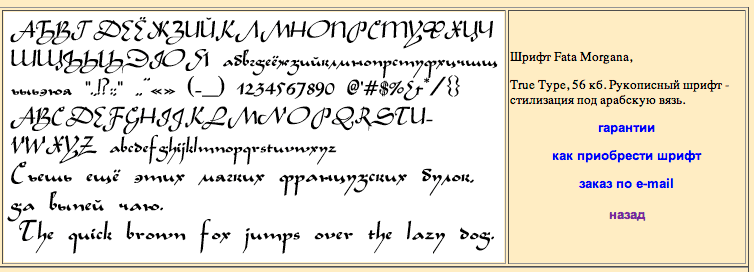 АБВГДЕЁЖЗИЙКЛМНОПРСТУФХЦЧ
ШЩЪЫЬЭЮЯ абвгдеёжзийклмнопрстуфхцчшщ
ъыьэюя ".,!?:;" ,,"«» (-_) 1234567890 @'#$%&*/{}
ABCDEFGHIJKLMNOPQRSTU-
VWXYZ abcdefghijklmnopqrstuvwxyz
Съешь ещё этих мягких французских булок,
да выпей чаю.
The quick brown fox jumps over the lazy dog.
Шрифт Fata Morgana,
True Type, 56 кб. Рукописный шрифт -
стилизация под арабскую вязь.
гарантии
как приобрести шрифт
заказ по e-mail
назад